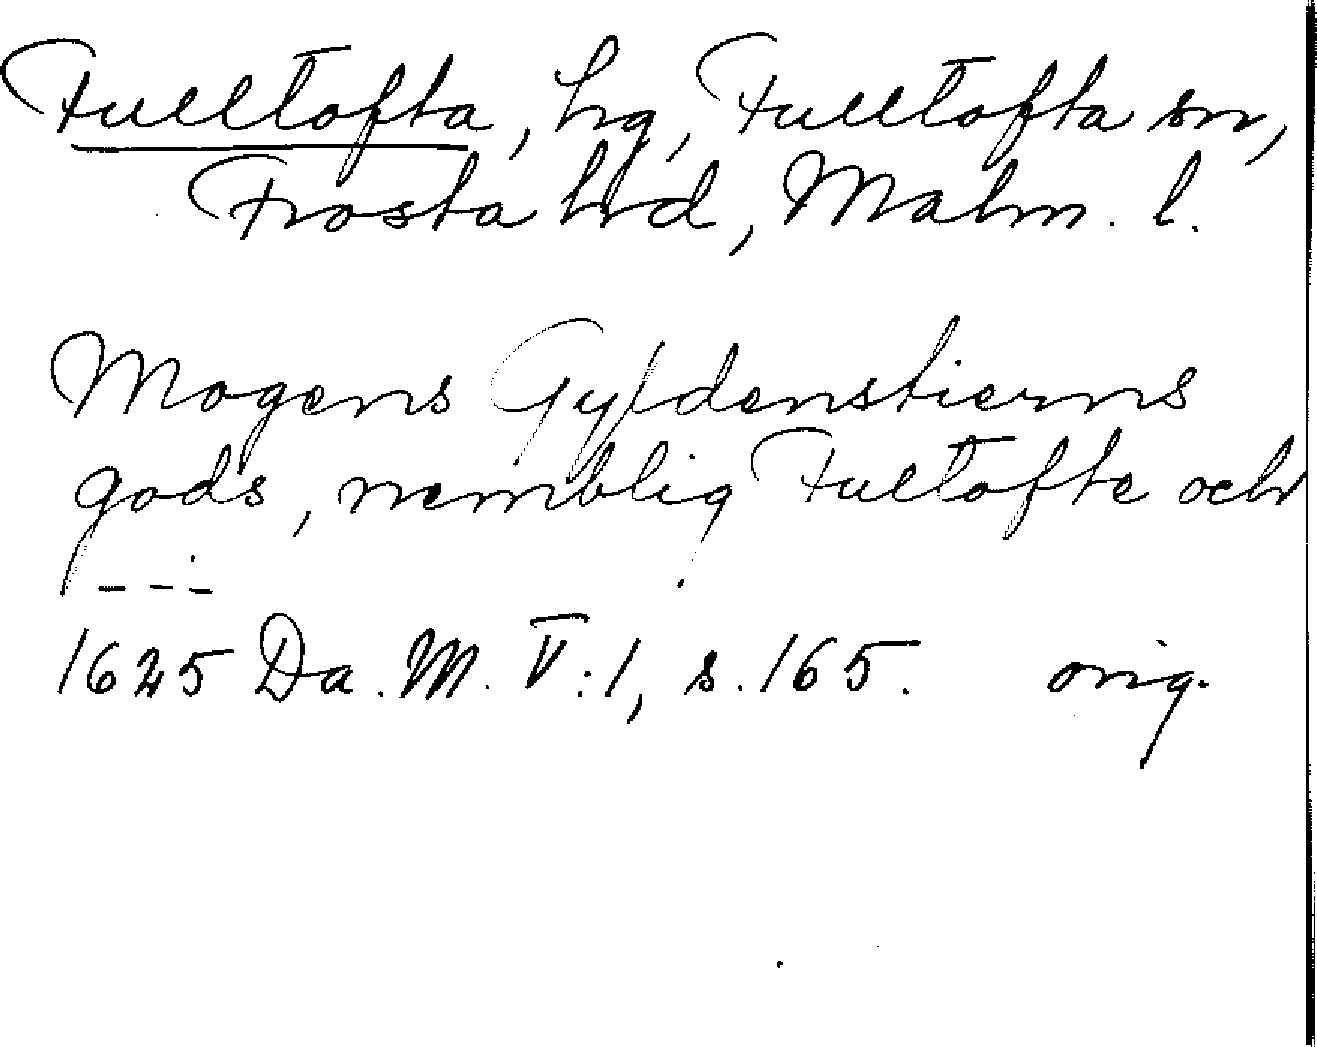 Fulltofta, hg, Fulltofta sn,
Frosta hrd, Malm. l.
Mogens Gyldenstierns
gods, nemblig Fultofte och
- - -
1625 Da. M. V:1, s. 165. orig.